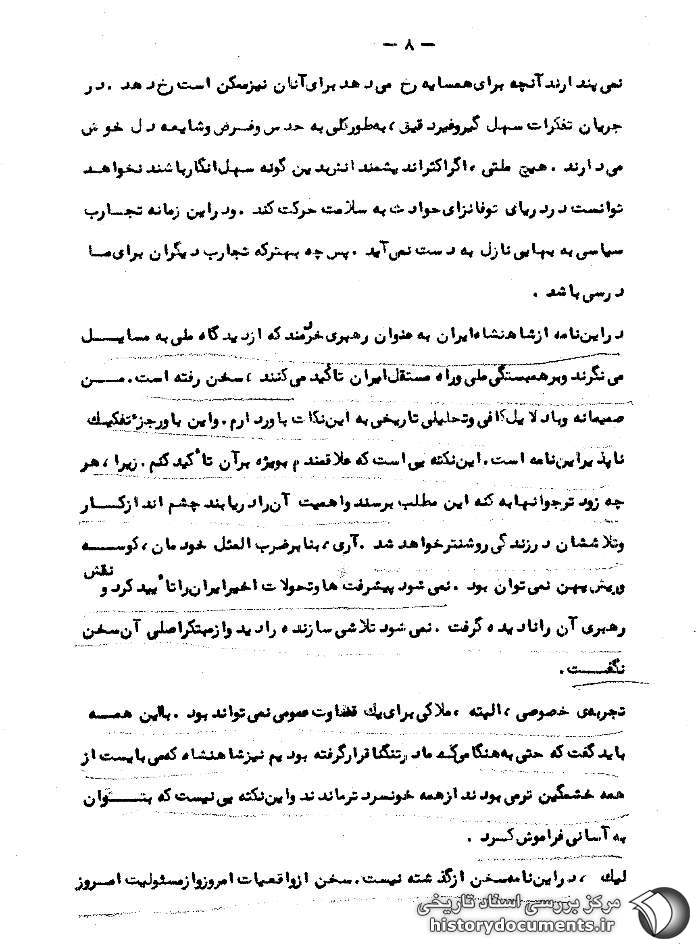 — ۸ —
نمی پندارند آنچه برای همسایه رخ می دهد برای آنان نیز ممکن است رخ دهد . در
جریان تفکرات سهل گیر و غیر دقیق ، به طور کلی به حدس و فرض و شایعه دل خوش
می دارند . هیچ ملتی ، اگر اکثر اندیشمند انش بدین گونه سهل انگار باشند نخواهد
توانست در دریای توفانزای حوادث به سلامت حرکت کند . و در این زمانه تجارب
سیاسی به بهایی نازل به دست نمی آید . پس چه بهتر که تجارب دیگران برای ما
درسی باشد .
در این نامه از شاهنشاه ایران به عنوان رهبری خردمند که از دیدگاه ملی به مسایل
می نگرند و بر همبستگی ملی و راه مستقل ایران تأکید می کنند ، سخن رفته است . من
صمیمانه و با دلایل کافی و تحلیلی تاریخی به این نکات باور دارم . و این باور جزء تفکیك
ناپذیر این نامه است . این نکته یی است که علاقمندم بویژه بر آن تأکید کنم . زیرا ، هر
چه زودتر جوانها به کنه این مطلب برسند و اهمیت آن را دریابند چشم اندازکار
و تلاششان در زندگی روشنتر خواهد شد . آری ، بنا بر ضرب المثل خودمان ، کوسه
و ریش پهن نمی توان بود . نمی شود پیشرفت ها و تحولات اخیر ایران را تأیید کرد و نقش
رهبری آن را نادیده گرفت . نمی شود تلاشی سازنده را دید و از مبتکر اصلی آن سخن
نگفت .
تجربه‌ی خصوصی ، البته ، ملاکی برای یك قضاوت عمومی نمی تواند بود . با این همه
باید گفت که حتی به هنگامی که ما در تنگنا قرار گرفته بودیم نیز شاهنشاه که می بایست از
همه خشمگین تر می بودند از همه خونسرد تر ماندند و این نکته یی نیست که بتوان
به آسانی فراموش کرد .
لیك ، در این نامه سخن از گذشته نیست . سخن از واقعیات امروز و از مسئولیت امروز
مرکز بررسی اسناد تاریخی
historydocuments.ir